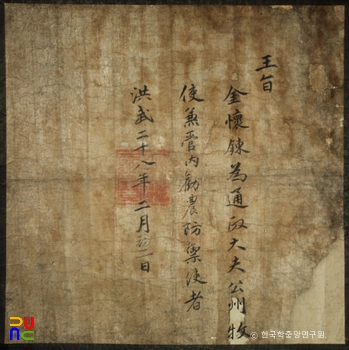 王旨
金懷鍊為通政大夫公州牧
使兼管內勸農防禦使者
洪武二十八年二月初一日
© 한국학중앙연구원